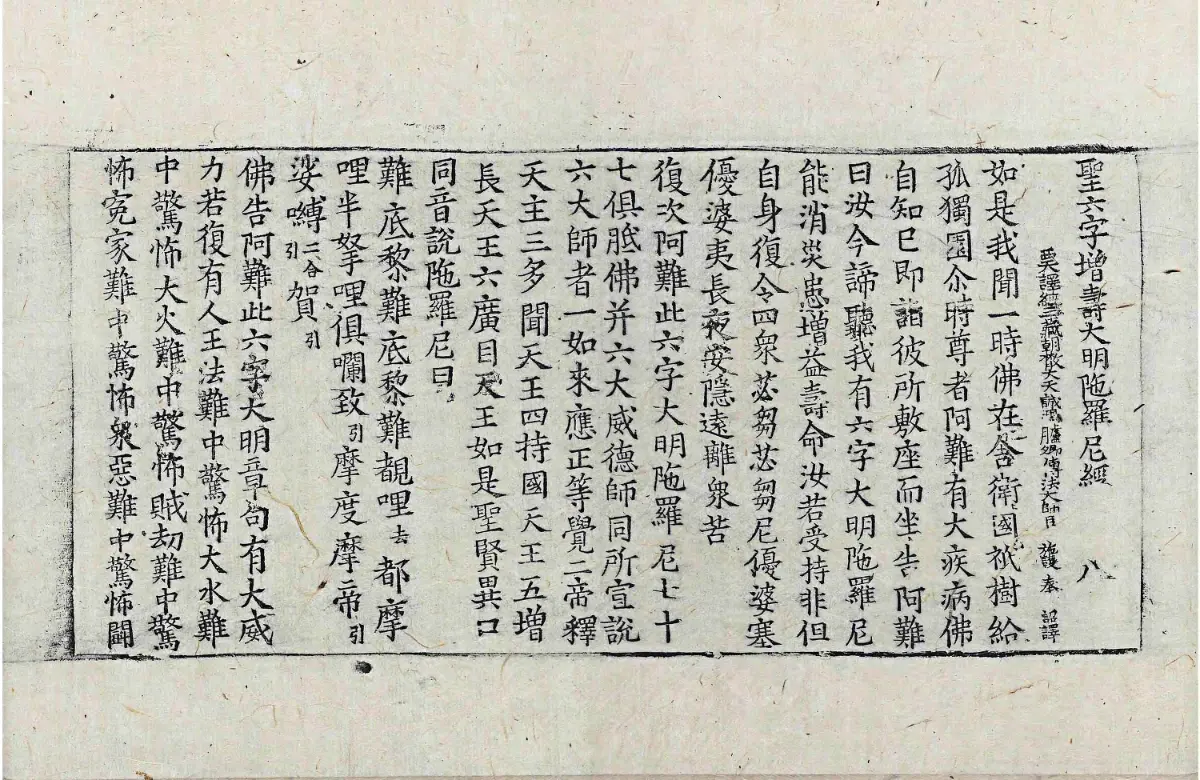 聖六字增壽大明陁羅尼經　八
西天譯經三藏朝散大夫試鴻臚卿傳法大師臣施護奉　詔譯
如是我聞一時佛在舍衛國祇樹給
孤獨園尒時尊者阿難有大疾病佛
自知已即詣彼所敷座而坐告阿難
曰汝今諦聽我有六字大明陁羅尼
能消災患增益壽命汝若受持非但
自身復令四衆苾芻苾芻尼優婆塞
優婆夷長夜安隱遠離衆苦
復次阿難此六字大明陁羅尼七十
七俱胝佛并六大威德師同所宣說
六大師者一如來應正等覺二帝釋
天主三多聞天王四持國天王五增
長天王六廣目天王如是聖賢異口
同音說陁羅尼曰
難底黎難底黎難覩哩去都摩
哩半拏哩俱囒致引摩度摩帝引
娑嚩二合引賀引
佛告阿難此六字大明章句有大威
力若復有人王法難中驚怖大水難
中驚怖大火難中驚怖賊劫難中驚
怖冤家難中驚怖衆惡難中驚怖鬪